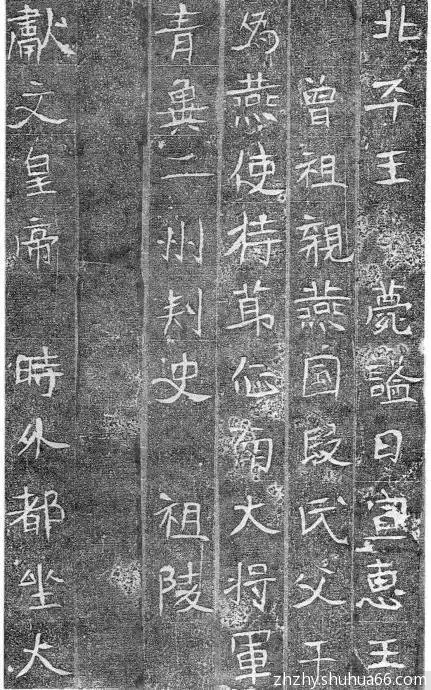 北平王　薨謚曰宣惠王
曾祖親燕国段氏父干
為燕使持节征南大将軍
青冀二州刺史　祖陵
獻文皇帝　時外都坐大
zhzhy.shuhua66.com